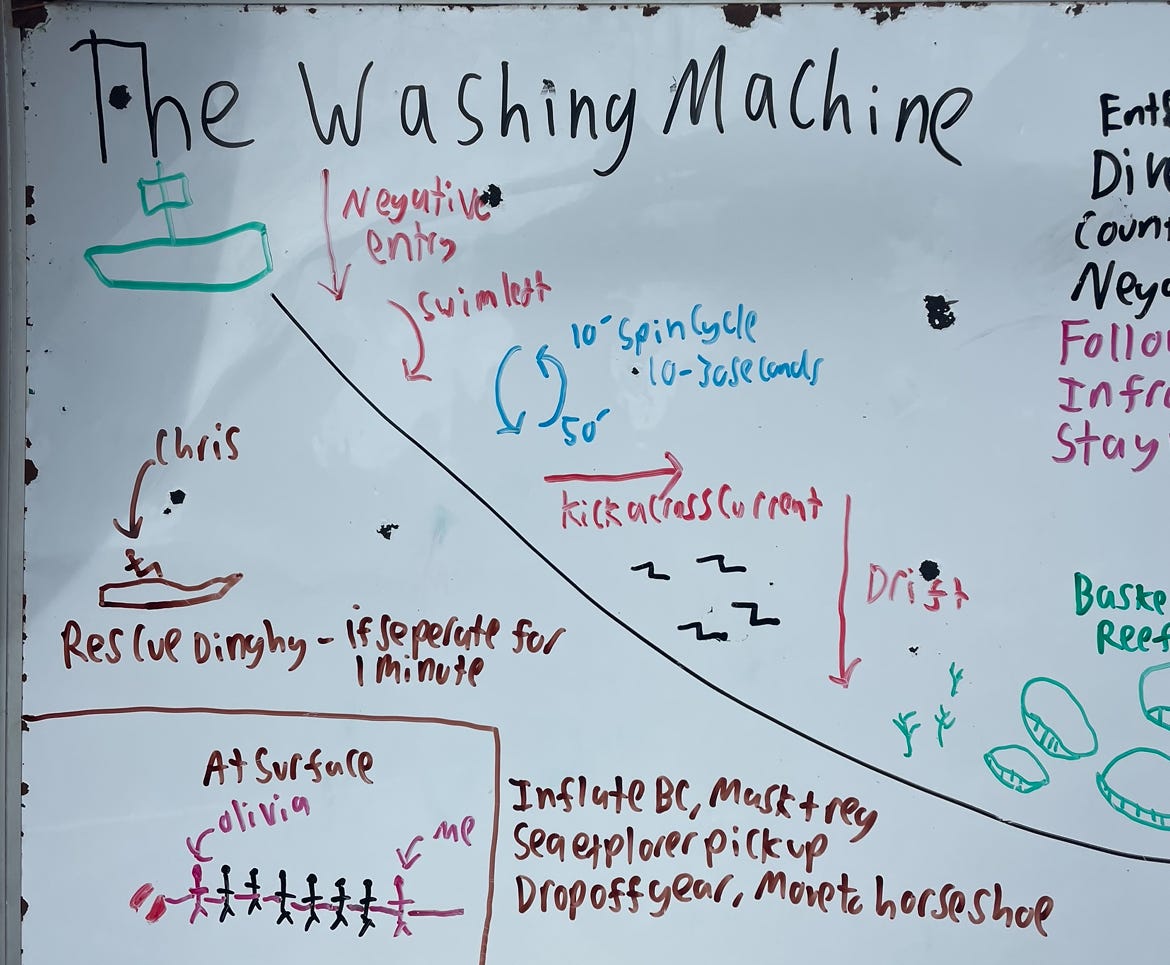 The Washing Machine
Negative
entry
swim left
10' Spin Cycle
• 10-30 seconds
50'
kick across current
Drift
Chris
Rescue Dinghy - if seperate for
1 minute
At Surface
olivia
me
Inflate BC, Mask + reg
Sea explorer pick up
Drop off gear, Move to horse shoe
Count
Follo
Infr
Stay
Baske
Reef